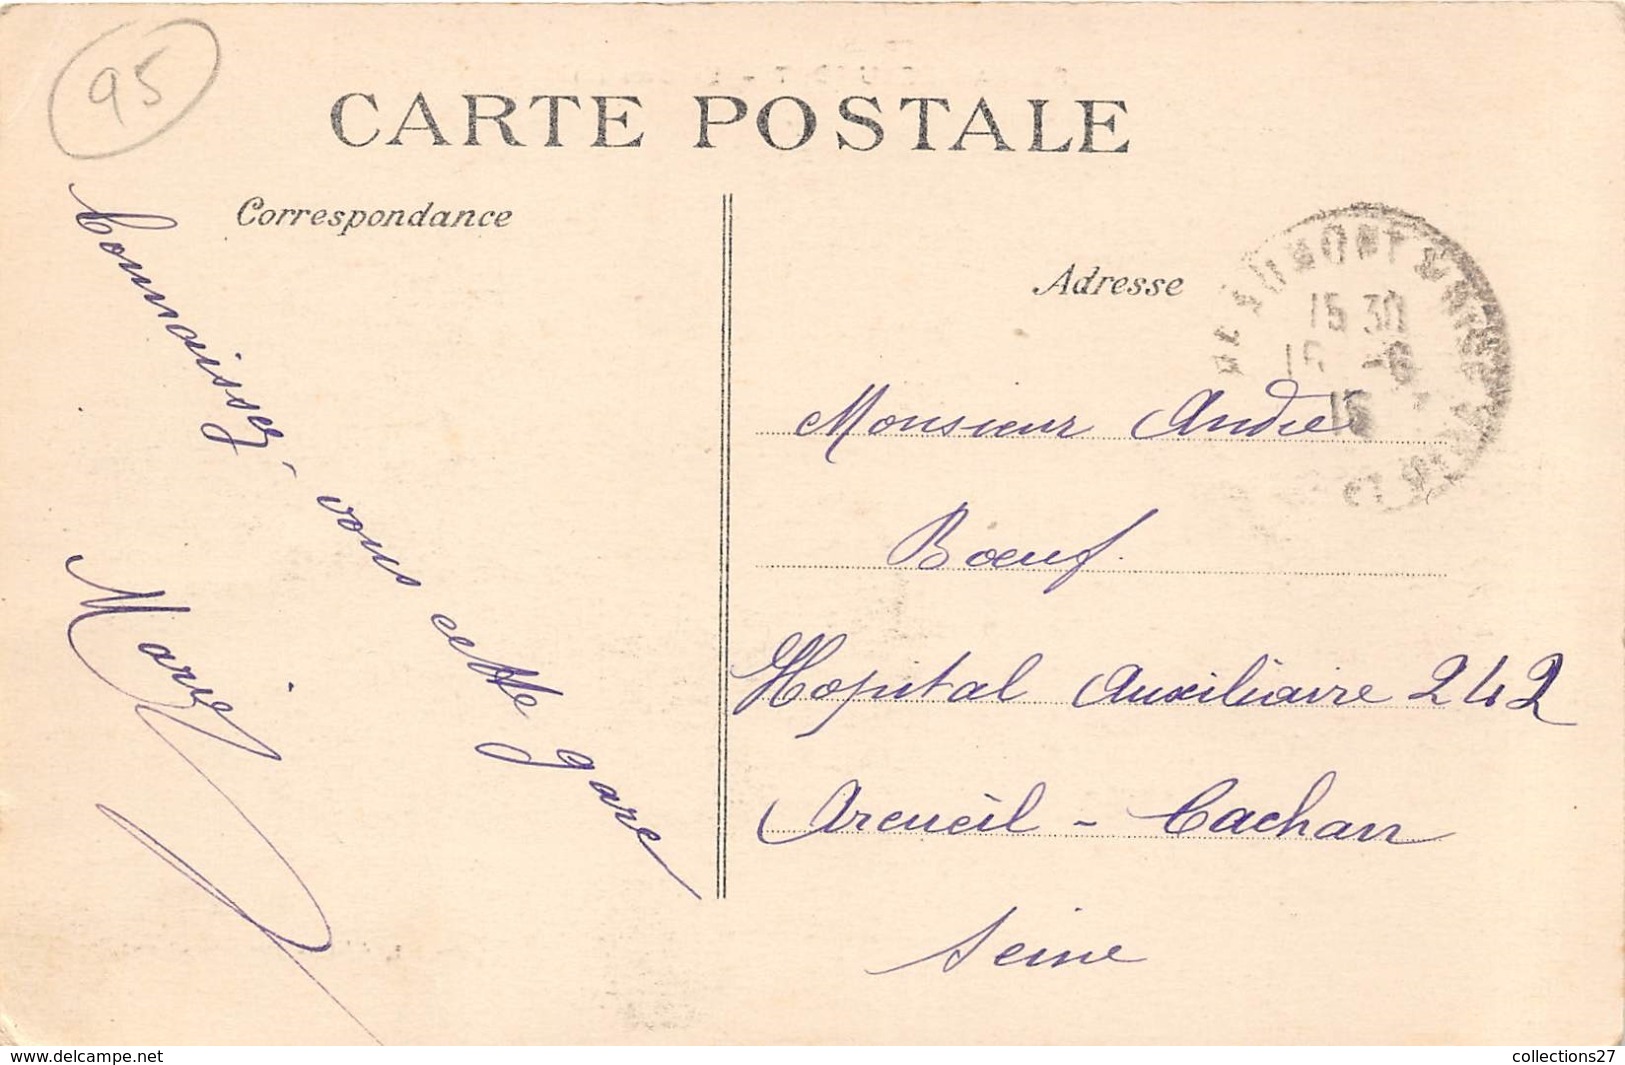 95
CARTE POSTALE
Correspondance
Connaissez-vous cette gare
Marie
Adresse
BEAUMONT S OISE
15 30
Monsieur André
Bœuf.
Hopital Auxiliaire 242
Arcueil - Cachan
Seine
www.delcampe.net
collections27